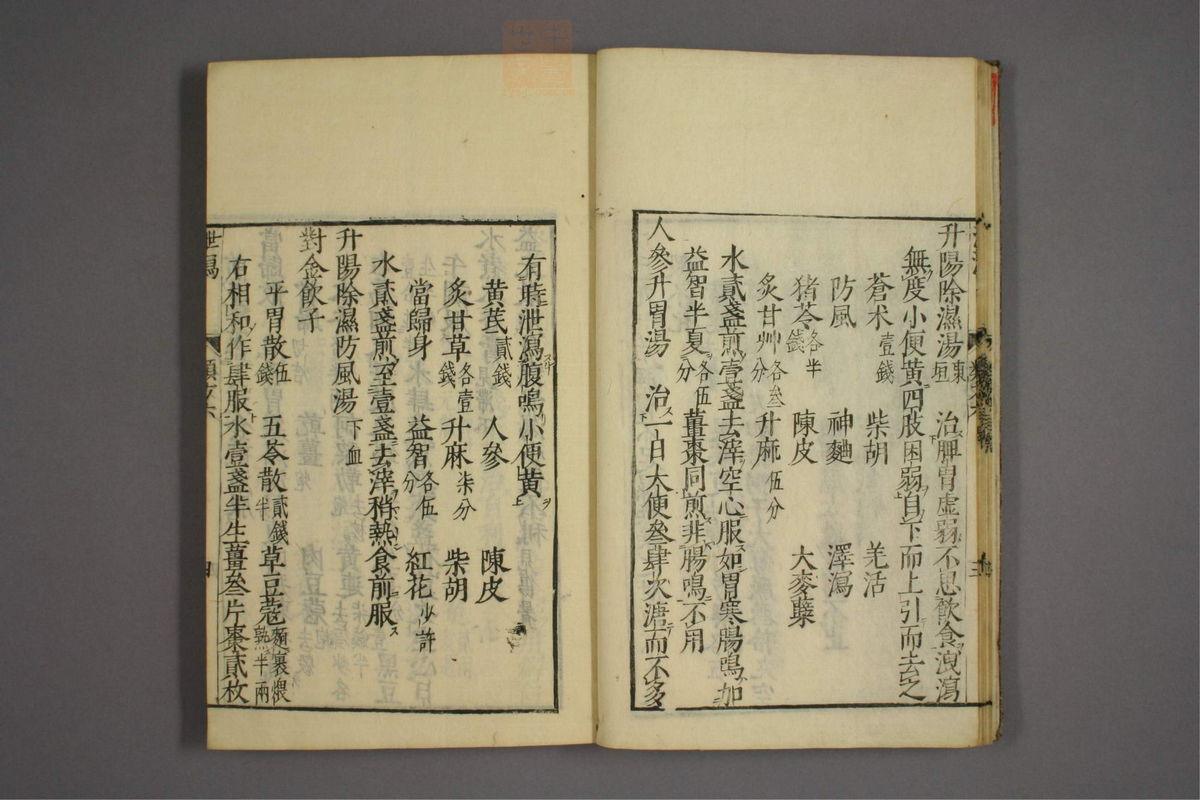 升陽除濕湯東垣 治脾胃虛弱不思飲食洩瀉
無度小便黃四肢困弱自下而上引而去之
蒼朮壹錢 柴胡 羌活
防風 神麯 澤瀉
猪苓各半錢 陳皮 大麥糵
炙甘艸各叁分 升麻伍分
水貳盞煎壹盞去滓空心服如胃寒腸鳴加
益智半夏各伍分薑棗同煎非腸鳴不用
人參升胃湯 治一日大便叁肆次溏而不多
有時泄瀉腹鳴小便黃
黃芪貳錢 人參 陳皮
炙甘草各壹錢 升麻柒分 柴胡
當歸身 益智各伍分 紅花少許
水貳盞煎至壹盞去滓稍熱食前服
升陽除濕防風湯下血
對金飲子
平胃散伍錢 五苓散貳錢半 草豆蔻麵裹煨熟半兩
右相和作肆服水壹盞半生薑叁片棗貳枚
泄瀉